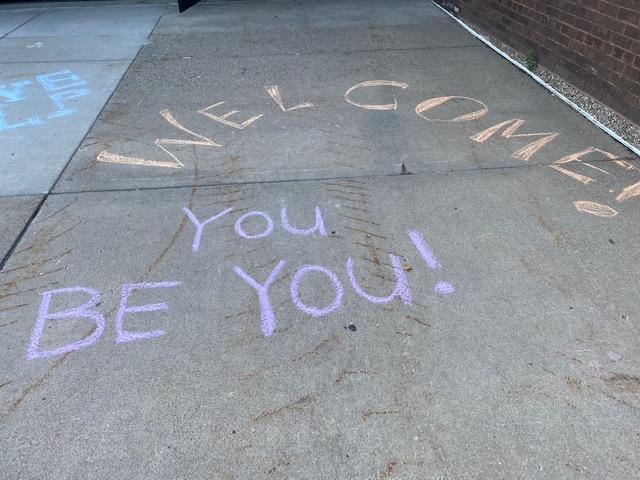 WELCOME!
You
BE YOU!